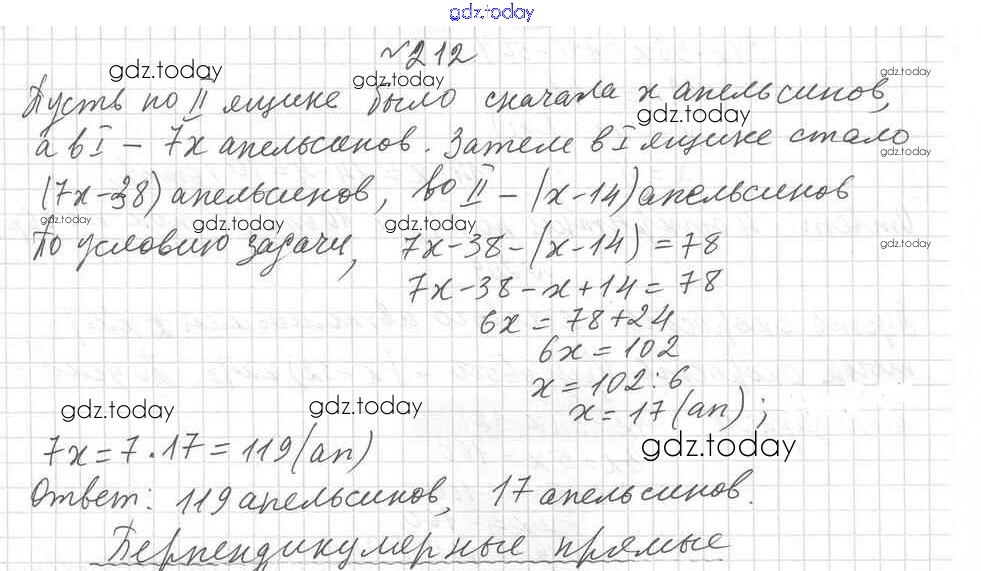 gdz.today
№212
gdz.today gdz.today gdz.today
Пусть во II ящике было сначала x апельсинов,
gdz.today
а в I – 7x апельсинов. Затем в I ящике стало
gdz.today
(7x-38) апельсинов, во II – (x-14) апельсинов
gdz.today gdz.today gdz.today
По условию задачи, 7x-38-(x-14)=78
gdz.today
7x-38-x+14=78
6x=78+24
6x=102
x=102:6
gdz.today gdz.today
x=17(ап);
gdz.today
7x=7·17=119(ап)
Ответ: 119 апельсинов, 17 апельсинов.
Перпендикулярные прямые